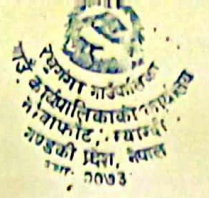 रघुगंगा गाउँपालिका
गाउँ कार्यपालिकाको कार्यालय
म्याग्दी
गण्डकी प्रदेश, नेपाल
२०७३